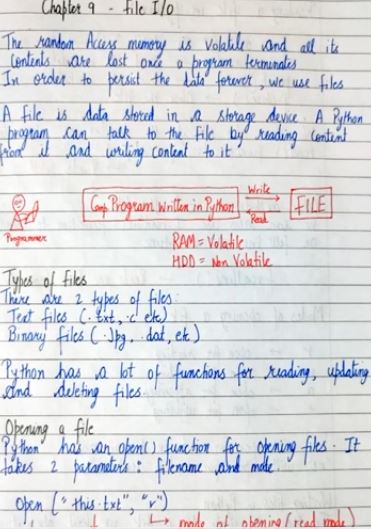 Chapter 9 - file I/O
The random Access memory is volatile and all its
contents are lost once a program terminates
In order to persist the data forever, we use files
A file is data stored in a storage device. A Python
program can talk to the file by reading content
from it and writing content to it
Program written in Python
Write
Read
FILE
Programmer
RAM = Volatile
HDD = Non Volatile
Types of files
There are 2 types of files:
Text files (.txt, .c etc)
Binary files (.Jpg, .dat, etc)
Python has a lot of functions for reading, updating
and deleting files.
Opening a file
Python has an open() function for opening files. It
takes 2 parameters: filename and mode.
Open ("this.txt", "r")
mode of opening (read mode)